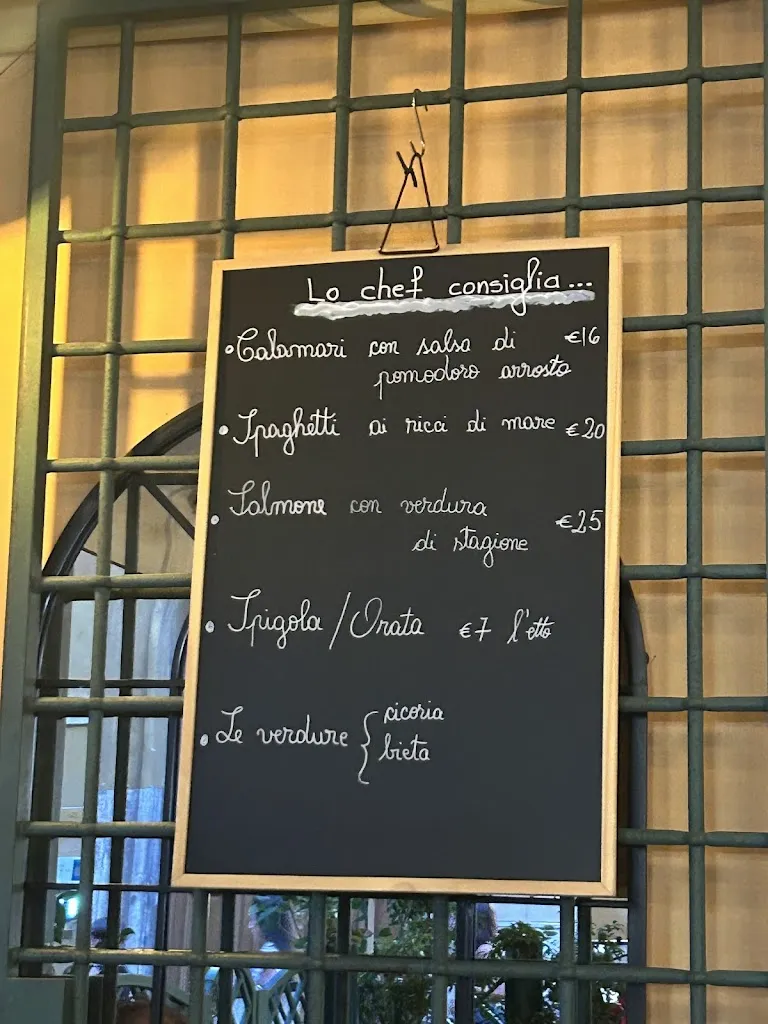 Lo chef consiglia...
• Calamari con salsa di €16
pomodoro arrosto
• Spaghetti ai ricci di mare €20
• Salmone con verdura €25
di stagione
• Spigola / Orata €7 l'etto
• Le verdure { cicoria
bieta